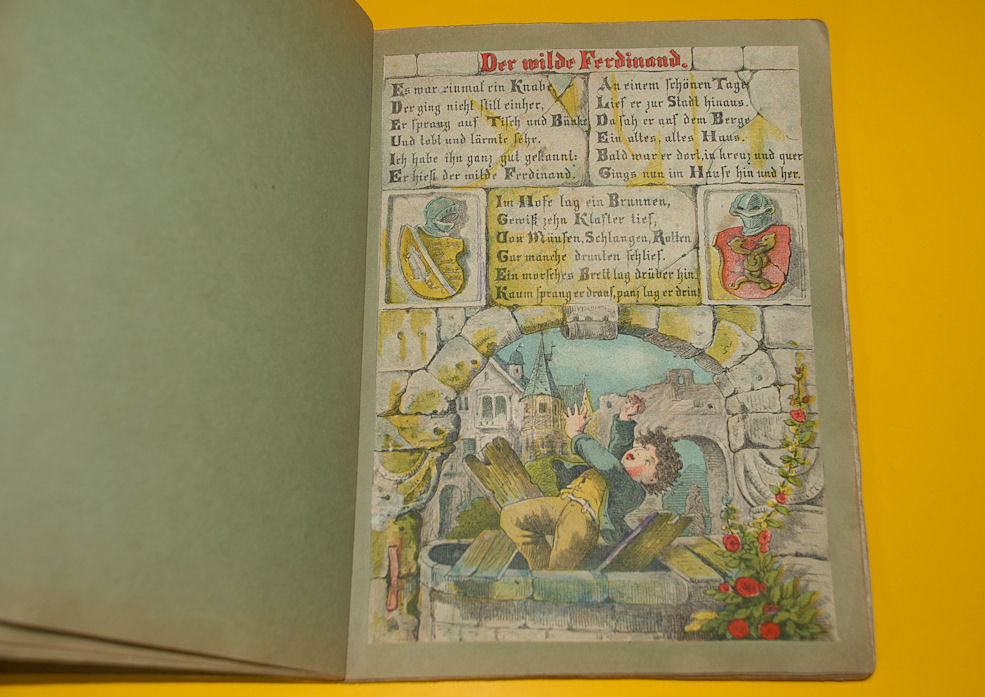 Der wilde Ferdinand.
Es war einmal ein Knabe,
Der ging nicht still einher,
Er sprang auf Tisch und Bänke
Und tobt und lärmte sehr.
Ich habe ihn ganz gut gekannt:
Er hieß der wilde Ferdinand.
An einem schönen Tage
Lief er zur Stadt hinaus.
Da sah er auf dem Berge
Ein altes, altes Haus.
Bald war er dort, in kreuz und quer
Gings nun im Hause hin und her.
Im Hofe lag ein Brunnen,
Gewiß zehn Klafter tief,
Von Mäusen, Schlangen, Ratten
Gar manche drunten schlief.
Ein morsches Brett lag drüber hin,
Kaum sprang er drauf, panz lag er drin!